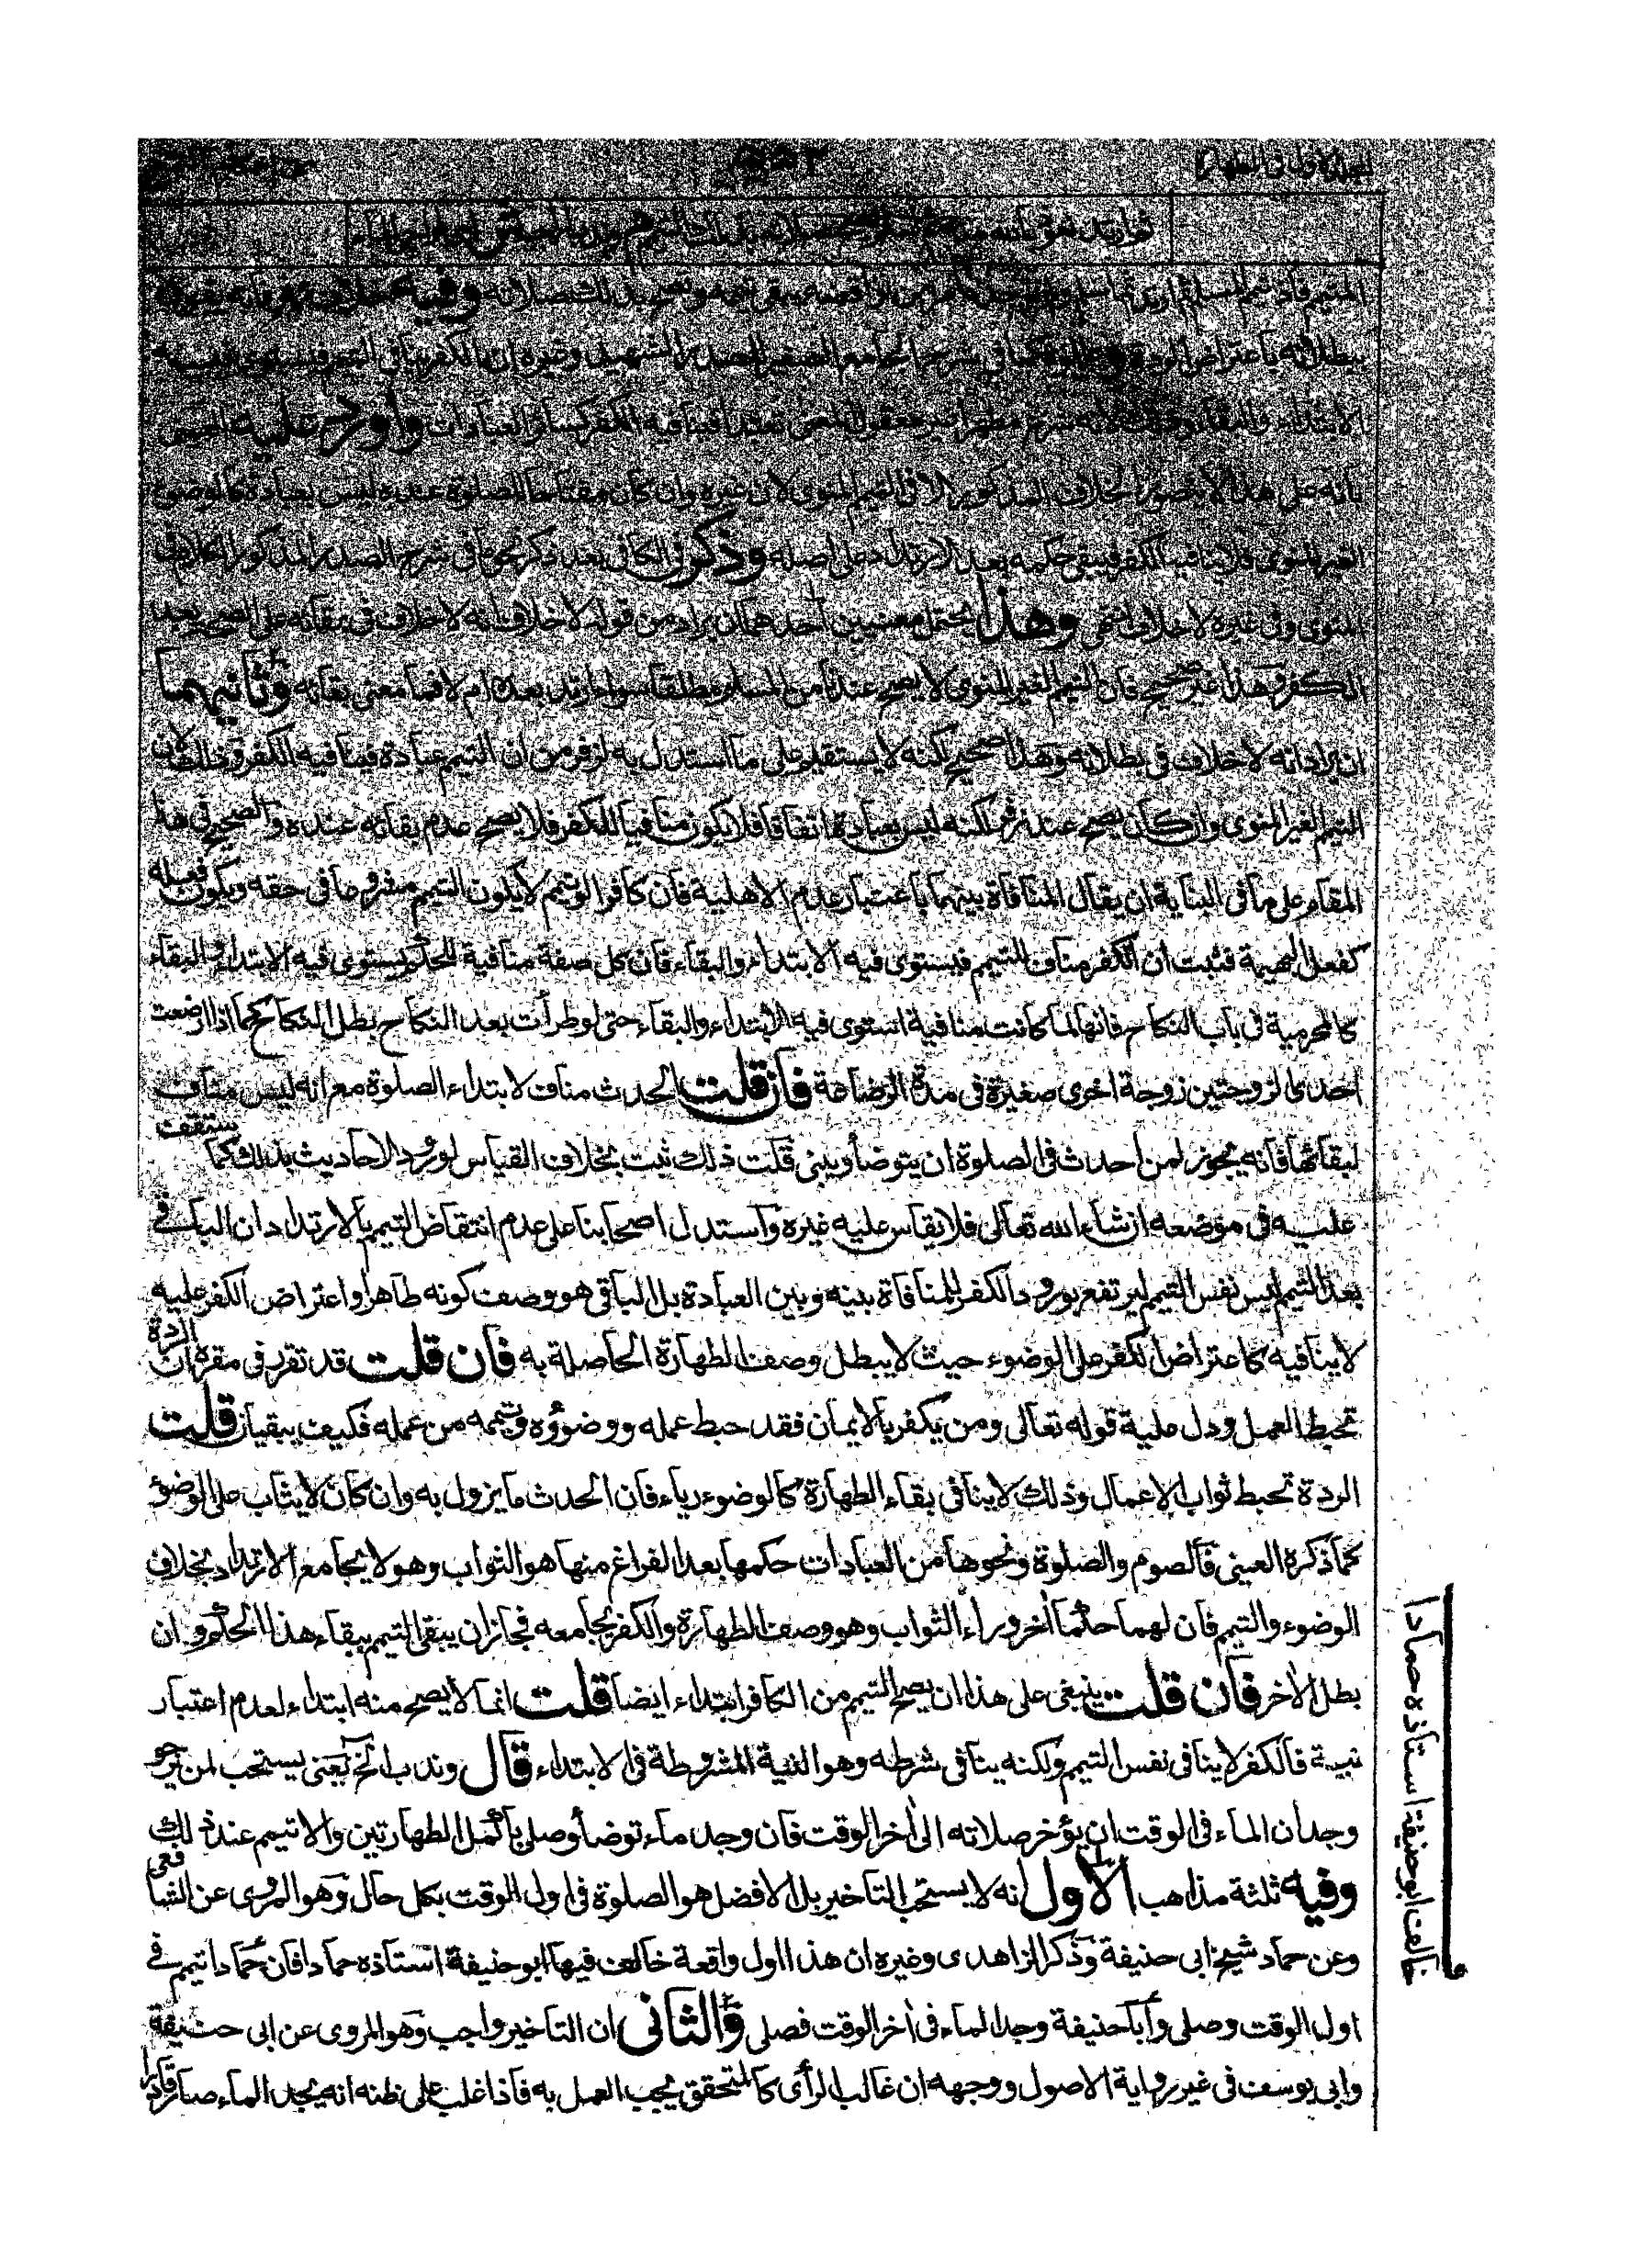 المجلد الاول فى الطهارة
المتيمم فاذا تيمم المسلم ثم ارتد ثم اسلم يبقى تيممه وفيه خلاف زفر فانه يقول
ببطلانه باعتراض الردة كما فى شرح الجامع الصغير للصدر الشهيد وغيره ان الكفر ينافى التيمم فيستوى فيه
الابتداء والبقاء وذلك لانه شرع مطهرا غير معقول المعنى تعبدا فينافيه الكفر كسائر العبادات واورد عليه
بانه على هذا لا يتصور الخلاف المذكور الا فى التيمم المنوى لا فى غيره وان كان مفتاحا للصلوة عنده ليس بعبادة كالوضوء
الغير المنوى فلا ينافيه الكفر فيبقى حكمه بعد الارتداد على اصله وذكر فى الكافى بعد ذكر نحو ما فى شرح الصدر المذكور الخلاف فى
المنوى وفى غيره لا خلاف انتهى وهذا يحتمل معنيين احدهما ان يراد من قوله لا خلاف انه لا خلاف فى بقائه على الصحيح بعد
الكفر وهذا غير صحيح فان التيمم الغير المنوى لا يصح عندنا من المسلم مطلقا سواء ارتد بعده ام لا فما معنى بقائه وثانيهما
ان يراد انه لا خلاف فى بطلانه وهذا صحيح لكنه لا يستقيم على ما استدل به لزفر من ان التيمم عبادة فينافيه الكفر وذلك لان
التيمم الغير المنوى وان كان يصح عند زفر لكنه ليس بعبادة اتفاقا فلا يكون منافيا للكفر فلا يصح عدم بقائه عنده والصحيح فى هذا
المقام على ما فى البناية ان يقال المنافاة بينهما باعتبار عدم الاهلية فان كافرا لو تيمم لا يكون التيمم مفروضا فى حقه ويكون فعله
كفعل البهيمة فثبت ان الكفر مناف للتيمم فيستوى فيه الابتداء والبقاء فان كل صفة منافية للحكم يستوى فيه الابتداء والبقاء
كالمحرمية فى باب النكاح فانها لما كانت منافية استوى فيه الابتداء والبقاء حتى لو طرأت بعد النكاح بطل النكاح كما اذا ارضعت
احدى الزوجتين زوجة اخرى صغيرة فى مدة الرضاعة فان قلت الحدث مناف لابتداء الصلوة مع انه ليس مناف
لبقائها فانه يجوز لمن احدث فى الصلوة ان يتوضأ ويبنى قلت ذلك ثبت بخلاف القياس لورود الاحاديث بذلك كما ستقف
عليه فى موضعه ان شاء الله تعالى فلا يقاس عليه غيره واستدل اصحابنا على عدم انتقاض التيمم بالارتداد ان الباقى
بعد التيمم ليس نفس التيمم ليرتفع بورود الكفر للمنافاة بينه وبين العبادة بل الباقى هو وصف كونه طاهرا واعتراض الكفر عليه
لا ينافيه كاعتراض الكفر على الوضوء حيث لا يبطل وصف الطهارة الحاصلة به فان قلت قد تقرر فى مقره ان الردة
تحبط العمل ودل عليه قوله تعالى ومن يكفر بالايمان فقد حبط عمله ووضوؤه وتيممه من عمله فكيف يبقيان قلت
الردة تحبط ثواب الاعمال وذلك لا ينافى بقاء الطهارة كالوضوء رياء فان الحدث ما يزول به وان كان لا يثاب على الوضوء
كما ذكره العينى فالصوم والصلوة ونحوها من العبادات حكمها بعد الفراغ منها هو الثواب وهو لا يجامع الارتداد بخلاف
الوضوء والتيمم فان لهما حكما أخر وراء الثواب وهو وصف الطهارة والكفر يجامعه فجاز ان يبقى التيمم ببقاء هذا الحكم وان
بطل الأخر فان قلت ينبغى على هذا ان يصح التيمم من الكافر ابتداء ايضا قلت انما لا يصح منه ابتداء لعدم اعتبار
نيته فالكفر لا ينافى نفس التيمم ولكنه ينافى شرطه وهو النية المشروطة فى الابتداء قال وندب الخ يعنى يستحب لمن يرجو
وجدان الماء فى الوقت ان يؤخر صلاته الى أخر الوقت فان وجد ماء توضأ وصلى باكمل الطهارتين والا تيمم عند ذلك
وفيه ثلثة مذاهب الاول انه لا يستحب التاخير بل الافضل هو الصلوة فى اول الوقت بكل حال وهو المروى عن الشافعى
وعن حماد شيخ ابى حنيفة وذكر الزاهدى وغيره ان هذا اول واقعة خالف فيها ابو حنيفة استاذه حمادا فان حمادا تيمم فى
اول الوقت وصلى وأبا حنيفة وجد الماء فى أخر الوقت فصلى والثانى ان التاخير واجب وهو المروى عن ابى حنيفة
وابى يوسف فى غير رواية الاصول ووجهه ان غالب الرأى كالمتحقق يجب العمل به فاذا غلب على ظنه انه يجد الماء صار قادرا
خالف ابو حنيفة استاذه حمادا